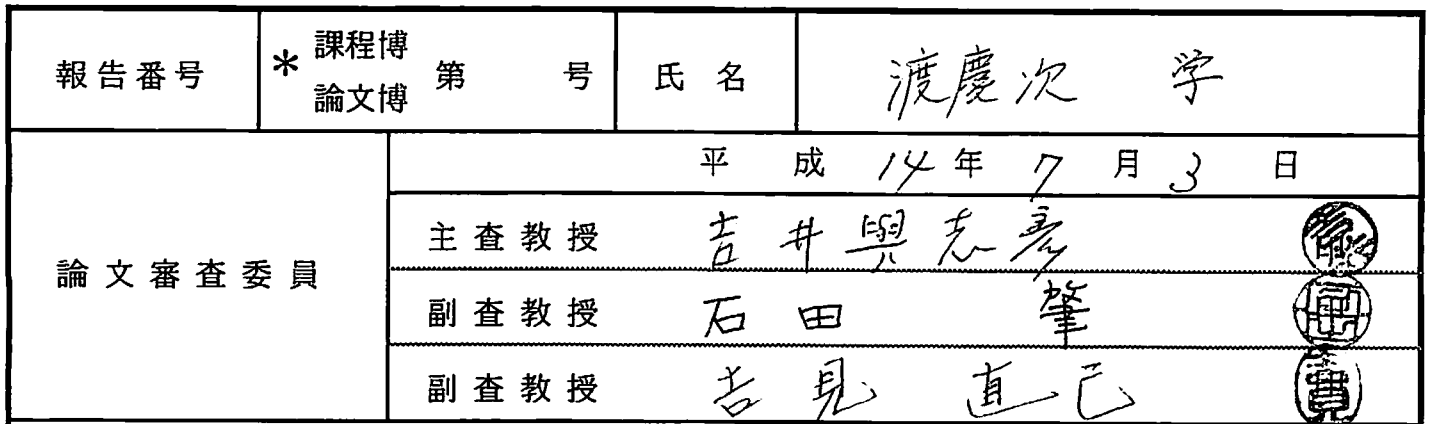 報告番号 * 課程博 論文博 第 号 氏名 渡慶次 学
論文審査委員
平成 14年 7月 3日
主査教授 吉井與志彦
副査教授 石田 肇
副査教授 吉見 直己